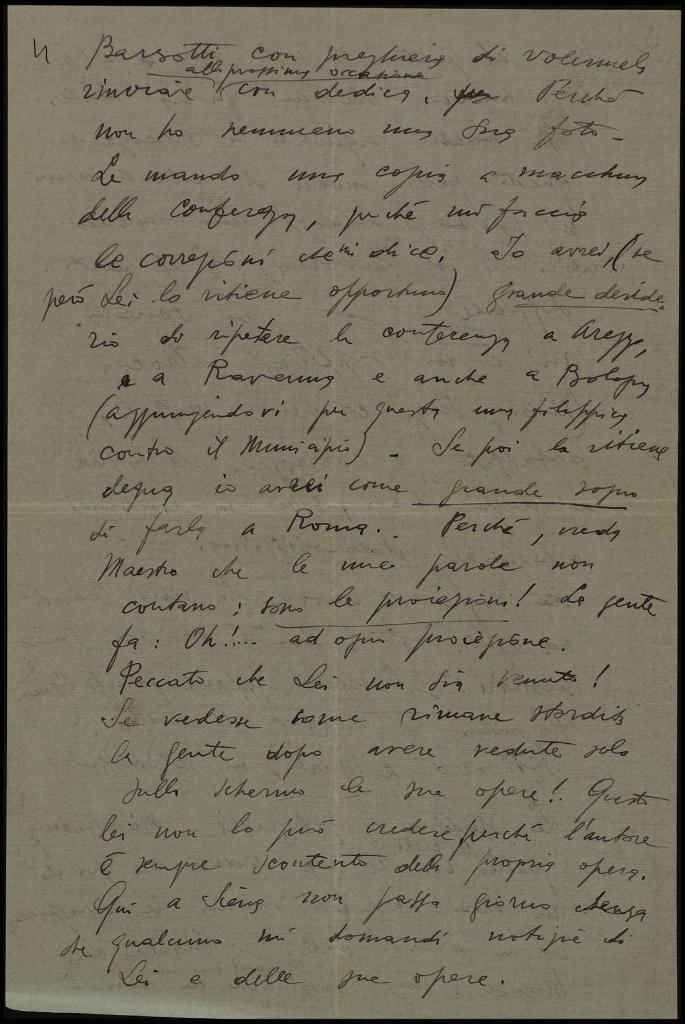 4) Barsotti con preghiera di volermela
alla prossima occasione
rinviare con dedica. Perché
non ho nemmeno una Sua foto -
Le mando una copia a macchina
della Conferenza, perché mi faccia
le correzioni che mi dice. Io avrei, (se
però Lei lo ritiene opportuno) grande deside-
rio di ripetere la conferenza a Arezzo,
e a Ravenna e anche a Bologna
(aggiungendovi per questa una filippica
contro il Municipio) - Se poi la ritiene
degna io avrei come grande sogno
di farla a Roma. Perché, creda
Maestro che le mie parole non
contano; sono le proiezioni! La gente
fa: Oh!... ad ogni proiezione.
Peccato che Lei non sia venuto!
Se vedesse come rimane stordita
la gente dopo avere vedute solo
sullo schermo le sue opere! Questo
lei non lo può credere perché l'autore
è sempre scontento della propria opera.
Qui a Siena non passa giorno senza
che qualcuno mi domandi notizie di
Lei e delle sue opere.